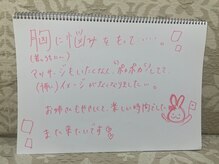 胸に悩みをもって…。
(昔からだ…)
マッサージもいたくなく、ポカポカしてて
(怖い)イメージがなくなりました…。
お姉さんもやさしくて、楽しい時間でした
また来たいです